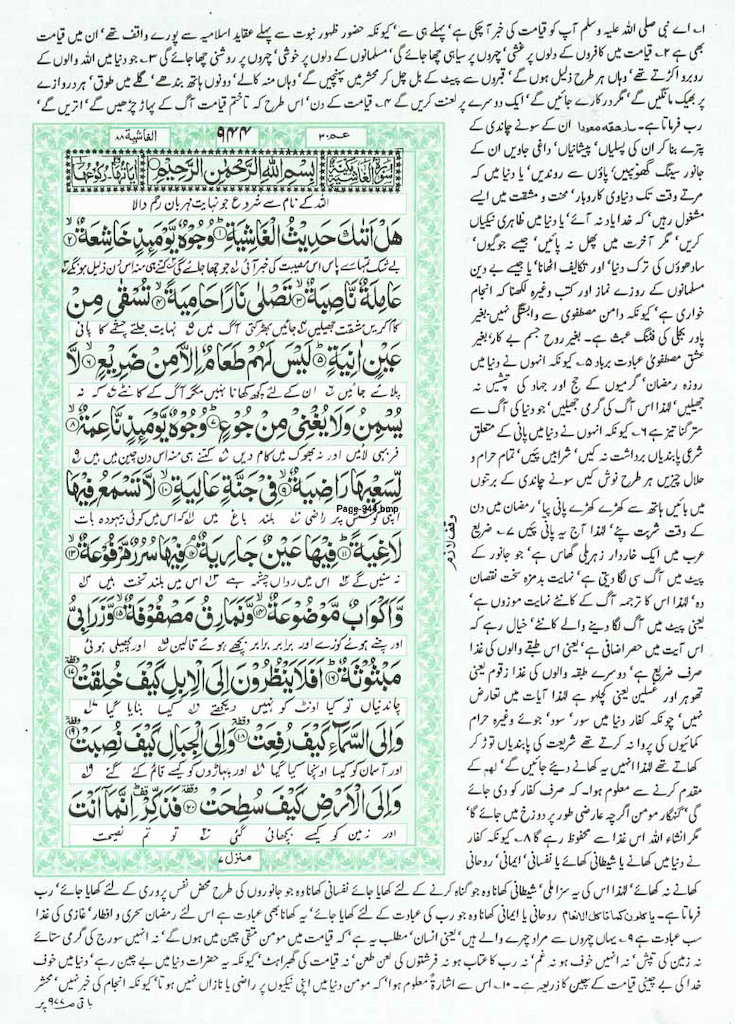 ۱۔ اے نبی صلی اللہ علیہ وسلم آپ کو قیامت کی خبر آ چکی ہے' پہلے ہی سے' کیونکہ حضور ظہور نبوت سے پہلے عقاید اسلامیہ سے پورے واقف تھے' ان میں قیامت
بھی ہے ۲۔ قیامت میں کافروں کے دلوں پر غشی' چہروں پر سیاہی چھا جائے گی' مسلمانوں کے دلوں پر خوشی' چہروں پر روشنی چھا جائے گی ۳۔ جو دنیا میں اللہ والوں کے
روبرو اکڑتے تھے' وہاں ہر طرح ذلیل ہوں گے' قبروں سے پیٹ کے بل چل کر محشر میں پہنچیں گے' وہاں منہ کالے' دونوں ہاتھ بندھے' گلے میں طوق' ہر دروازے
پر بھیک مانگیں گے' مگر دھتکارے جائیں گے' ایک دوسرے پر لعنت کریں گے ۴۔ قیامت کے دن' اس طرح کہ تاختم قیامت آگ کے پہاڑ چڑھیں گے' اتریں گے'
رب فرماتا ہے۔ سارھقه صعودا ان کے سونے چاندی کے
پترے بنا کر ان کی پسلیاں' پیشانیاں' داغی جاویں ان کے
جانور سینگ گھونپیں' پاؤں سے روندیں' یا دنیا میں کہ
مرتے وقت تک دنیاوی کاروبار' محنت و مشقت میں ایسے
مشغول رہیں' کہ خدا یاد نہ آئے' یا دنیا میں ظاہری نیکیاں
کریں' مگر آخرت میں پھل نہ پائیں' جیسے جوگیوں'
سادھوؤں کی ترک دنیا' اور تکالیف اٹھانا' یا جیسے بے دین
مسلمانوں کے روزے نماز اور کتب وغیرہ لکھنا کہ انجام
خواری ہے' کیونکہ دامن مصطفوی سے وابستگی نہیں۔ بغیر
پاور بجلی کی فٹنگ عبث ہے۔ بغیر روح جسم بے کار' بغیر
عشق مصطفوی عبادت برباد ۵۔ کیونکہ انہوں نے دنیا میں
روزہ رمضان' گرمیوں کے حج اور جہاد کی تپشیں نہ
جھیلیں' لہٰذا اس آگ کی گرمی جھیلیں' جو دنیا کی آگ سے
ستر گنا تیز ہے ۶۔ کیونکہ انہوں نے دنیا میں پانی کے متعلق
شرعی پابندیاں برداشت نہ کیں' شرابیں پئیں' تمام حرام و
حلال چیزیں ہر طرح نوش کیں سونے چاندی کے برتنوں
میں بائیں ہاتھ سے کھڑے کھڑے پانی پیا' رمضان میں دن
کے وقت شربت پئے' لہٰذا آج یہ پانی پئیں ۷۔ ضریع
عرب میں ایک خاردار زہریلی گھاس ہے' جو جانور کے
پیٹ میں آگ سی لگا دیتی ہے' نہایت بدمزہ سخت نقصان
دہ' لہٰذا اس کا ترجمہ آگ کے کانٹے نہایت موزوں ہے'
یعنی پیٹ میں آگ لگا دینے والے کانٹے' خیال رہے کہ
اس آیت میں حصر اضافی ہے' یعنی اس طبقے والوں کی غذا
صرف ضریع ہے' دوسرے طبقہ والوں کی غذا زقوم یعنی
تھوہر اور غسلین یعنی کچلہو ہے لہٰذا آیات میں تعارض
نہیں' چونکہ کفار دنیا میں سور' سود' جوئے وغیرہ حرام
کمائیوں کی پروا نہ کرتے تھے شریعت کی پابندیاں توڑ کر
کھاتے تھے لہٰذا انہیں یہ کھانے دیئے جائیں گے' لھم کے
مقدم کرنے سے معلوم ہوا۔ کہ صرف کفار کو دی جائے
گی' گنہگار مومن اگرچہ عارضی طور پر دوزخ میں جائے گا'
مگر انشاء اللہ اس غذا سے محفوظ رہے گا ۸۔ کیونکہ کفار
نے دنیا میں کھانے یا شیطانی کھائے یا نفسانی' ایمانی' روحانی
وقف لازم
الغاشیة ۸۸
۹۴۴
عم ۳۰
سورة الغاشية مكية
بسم الله الرحمن الرحيم
اللہ کے نام سے شروع جو نہایت مہربان رحم والا
هَلْ اَتٰىكَ حَدِيْثُ الْغَاشِيَةِ ۱ وُجُوْهٌ يَّوْمَئِذٍ خَاشِعَةٌ ۲
بے شک تمہارے پاس اس مصیبت کی خبر آئی جو چھا جائے گی کتنے ہی منہ اس دن ذلیل ہوں گے
عَامِلَةٌ نَّاصِبَةٌ ۳ تَصْلٰى نَارًا حَامِيَةً ۴ تُسْقٰى مِنْ
کام کریں مشقت جھیلیں جائیں بھڑکتی آگ میں نہایت جلتے چشمے کا پانی
عَيْنٍ اٰنِيَةٍ ۵ لَيْسَ لَهُمْ طَعَامٌ اِلَّا مِنْ ضَرِيْعٍ ۶ لَّا
پلائے جائیں ان کے لئے کچھ کھانا نہیں مگر آگ کے کانٹے کہ نہ
يُسْمِنُ وَلَا يُغْنِيْ مِنْ جُوْعٍ ۷ وُجُوْهٌ يَّوْمَئِذٍ نَّاعِمَةٌ ۸
فربہی لائیں اور نہ بھوک میں کام دیں کتنے ہی منہ اس دن چین میں ہیں
لِّسَعْيِهَا رَاضِيَةٌ ۹ فِيْ جَنَّةٍ عَالِيَةٍ ۱۰ لَّا تَسْمَعُ فِيْهَا
اپنی کوشش پر راضی بلند باغ میں کہ اس میں کوئی بیہودہ بات
Page-944.bmp
لَاغِيَةً ۱۱ فِيْهَا عَيْنٌ جَارِيَةٌ ۱۲ فِيْهَا سُرُرٌ مَّرْفُوْعَةٌ ۱۳
نہ سنیں گے اس میں رواں چشمہ ہے اس میں بلند تخت ہیں
وَّاَكْوَابٌ مَّوْضُوْعَةٌ ۱۴ وَّنَمَارِقُ مَصْفُوْفَةٌ ۱۵ وَّزَرَابِيُّ
اور چنے ہوئے کوزے اور برابر برابر بچھے ہوئے قالین اور پھیلی ہوئی
مَبْثُوْثَةٌ ۱۶ اَفَلَا يَنْظُرُوْنَ اِلَى الْاِبِلِ كَيْفَ خُلِقَتْ ۱۷
چاندنیاں تو کیا اونٹ کو نہیں دیکھتے کیسا بنایا گیا
وَاِلَى السَّمَآءِ كَيْفَ رُفِعَتْ ۱۸ وَاِلَى الْجِبَالِ كَيْفَ نُصِبَتْ ۱۹
اور آسمان کو کیسا اونچا کیا گیا اور پہاڑوں کو کیسے قائم کئے گئے
وَاِلَى الْاَرْضِ كَيْفَ سُطِحَتْ ۲۰ فَذَكِّرْ اِنَّمَآ اَنْتَ
اور زمین کو کیسے بچھائی گئی تو تم نصیحت
منزل ۷
کھانے نہ کھائے' لہٰذا اس کی یہ سزا ملی' شیطانی کھانا وہ جو گناہ کرنے کے لئے کھایا جائے نفسانی کھانا وہ جو جانوروں کی طرح محض نفس پروری کے لئے کھایا جائے' رب
فرماتا ہے۔ یاکلون کما تاکل الانعام روحانی یا ایمانی کھانا وہ جو رب کی عبادت کے لئے کھایا جائے' یہ کھانا بھی عبادت ہے اس لئے رمضان سحری و افطار' غازی کی غذا
سب عبادت ہے ۹۔ یہاں چہروں سے مراد چہرے والے ہیں' یعنی انسان' مطلب یہ ہے' کہ قیامت میں مومن متقی چین میں ہوں گے' نہ انہیں سورج کی گرمی ستائے
نہ زمین کی تپش' نہ انہیں خوف ہو نہ غم' نہ رب کا عتاب ہو نہ فرشتوں کی لعن طعن' نہ قیامت کی گھبراہٹ' کیونکہ یہ حضرات دنیا میں بے چین رہے' دنیا میں خوف
خدا کی بے چینی قیامت کے چین کا ذریعہ ہے۔ ۱۰۔ اس سے اشارۃً معلوم ہوا' کہ مومن دنیا میں اپنی نیکیوں پر راضی یا نازاں نہیں ہوتا' کیونکہ انجام کی خبر نہیں' محشر
باقی ص ۹۷۷ پر